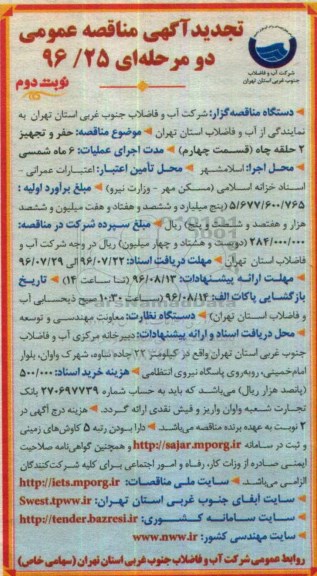 تجدیدآگهی مناقصه عمومی
دو مرحله‌ای ۹۶/۲۵
نوبت دوم
شرکت آب و فاضلاب
جنوب غربی استان تهران
دستگاه مناقصه‌گزار: شرکت آب و فاضلاب جنوب غربی استان تهران به
نمایندگی از آب و فاضلاب استان تهران موضوع مناقصه: حفر و تجهیز
۲ حلقه چاه (قسمت چهارم) مدت اجرای عملیات: ۶ ماه شمسی
محل اجرا: اسلامشهر محل تأمین اعتبار: اعتبارات عمرانی -
اسناد خزانه اسلامی (مسکن مهر - وزارت نیرو) مبلغ برآورد اولیه:
۵/۶۷۷/۶۰۰/۷۶۵ (پنج میلیارد و ششصد و هفتاد و هفت میلیون و ششصد
هزار و هفتصد و شصت و پنج) ریال مبلغ سپرده شرکت در مناقصه:
۲۸۴/۰۰۰/۰۰۰ (دویست و هشتاد و چهار میلیون) ریال در وجه شرکت آب و
فاضلاب استان تهران مهلت دریافت اسناد: ۹۶/۰۷/۲۲ الی ۹۶/۰۷/۲۹
مهلت ارائه پیشنهادات: ۹۶/۰۸/۱۳ (تا ساعت ۱۴) تاریخ
بازگشایی پاکات الف: ۹۶/۰۸/۱۴ (ساعت ۱۰:۳۰ صبح ذیحسابی آب
و فاضلاب استان تهران) دستگاه نظارت: معاونت مهندسی و توسعه
محل دریافت اسناد و ارائه پیشنهادات: دبیرخانه مرکزی آب و فاضلاب
جنوب غربی استان تهران واقع در کیلومتر ۲۲ جاده ساوه، شهرک واوان، بلوار
امام‌خمینی، روبه‌روی پاسگاه نیروی انتظامی هزینه خرید اسناد: ۵۰۰/۰۰۰
(پانصد هزار ریال) می‌باشد که باید به حساب شماره ۲۷۰۶۹۷۷۳۹ بانک
تجارت شعبه واوان واریز و فیش نقدی ارائه گردد. هزینه درج آگهی در
۲ نوبت به عهده برنده مناقصه می‌باشد دارا بودن رتبه ۵ کاوش‌های زمینی
و ثبت در سامانه http://sajar.mporg.ir و همچنین گواهی‌نامه صلاحیت
ایمنی صادره از وزارت کار، رفاه و امور اجتماعی برای کلیه شرکت‌کنندگان
الزامی می‌باشد. سایت ملی مناقصات: http://iets.mporg.ir
سایت آبفای جنوب غربی استان تهران: Swest.tpww.ir
سایت سامانه کشوری: http://tender.bazresi.ir
سایت مهندسی کشور: www.nww.ir
روابط عمومی شرکت آب و فاضلاب جنوب غربی استان تهران (سهامی خاص)